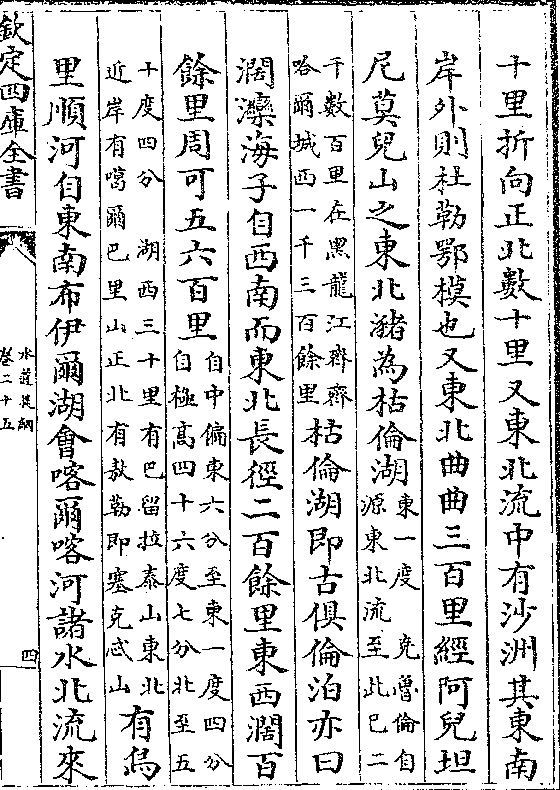 十里折向正北數十里又東北流中有沙洲其東南
岸外則杜勒鄂模也又東北曲曲三百里經阿兒坦
尼莫兒山之東北瀦為枯倫湖
東一度　克魯倫自
源東北流至此已二
千數百里在黑龍江齊齊
哈爾城西一千三百餘里
枯倫湖即古俱倫泊亦曰
濶灤海子自西南而東北長徑二百餘里東西濶百
餘里周可五六百里
自中偏東六分至東一度四分
自極高四十六度七分北至五
十度四分　湖西三十里有巴留拉泰山東北
近岸有噶爾巴里山正北有敖勒即塞克忒山
有烏
里順河自東南布伊爾湖會喀爾喀河諸水北流來
欽定四庫全書
水道提綱
卷二十五
四